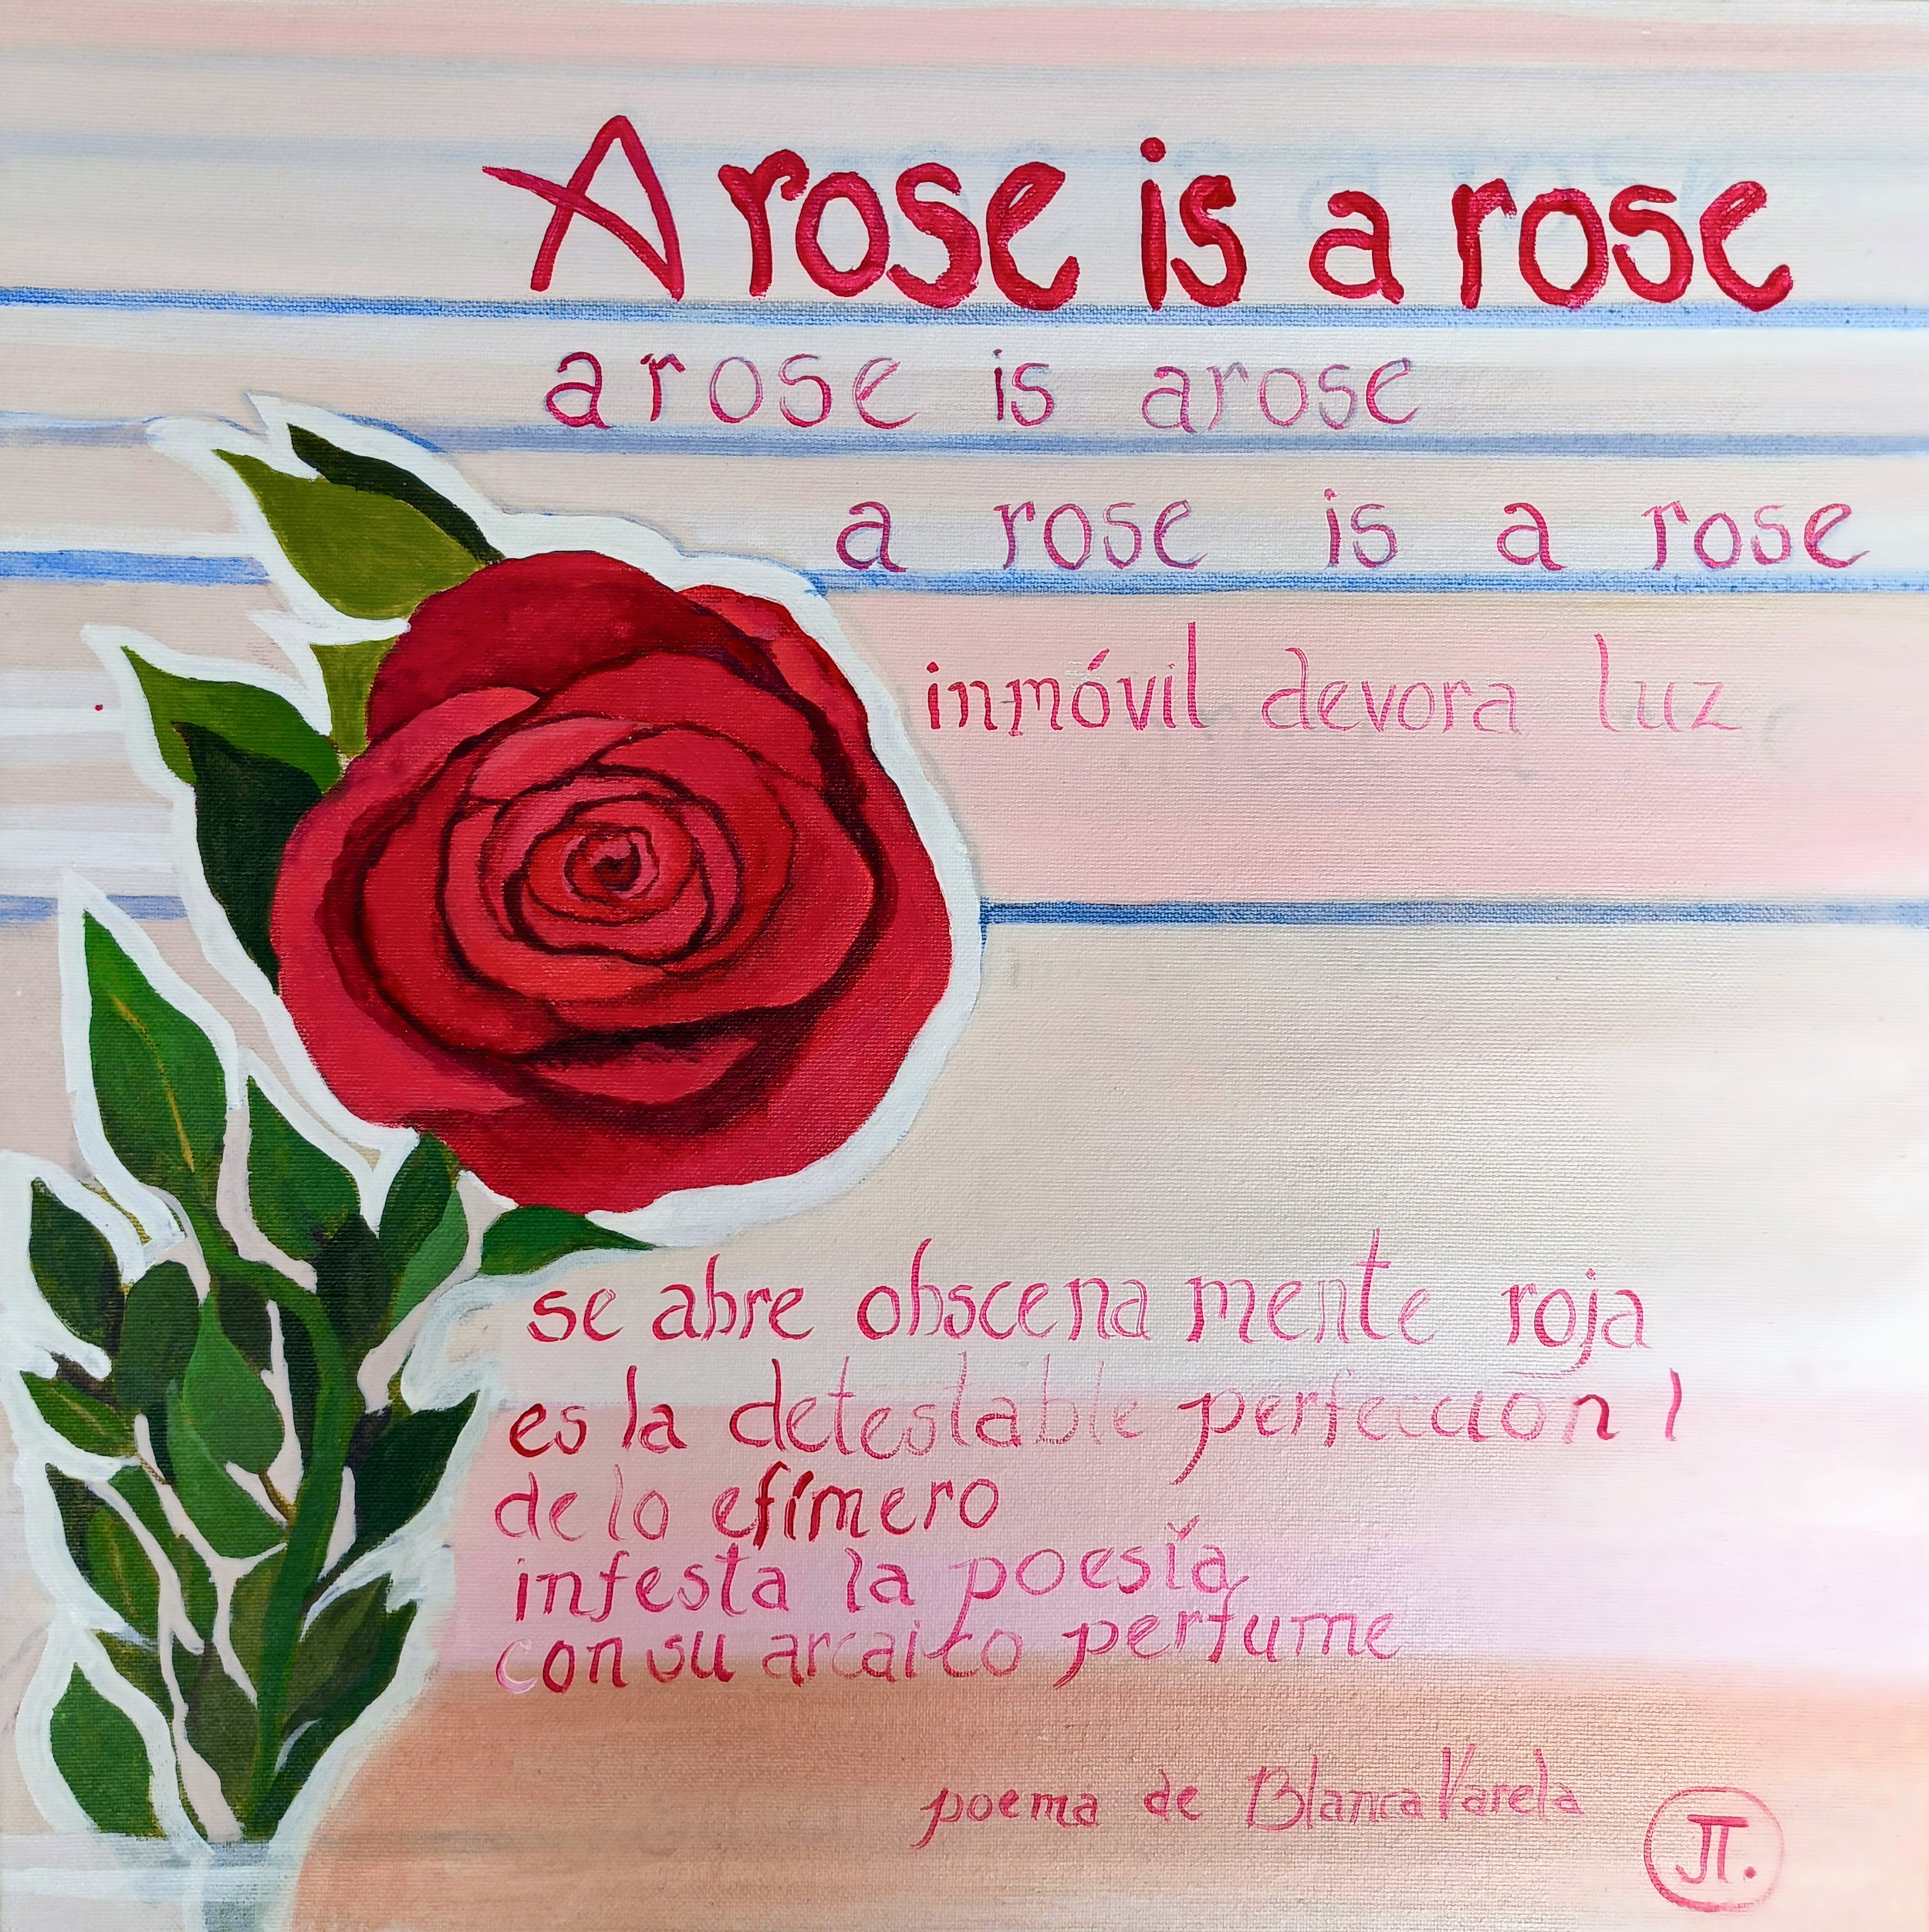 A rose is a rose
arose is arose
a rose is a rose
inmóvil devora luz
se abre obscenamente roja
es la detestable perfección
de lo efímero
infesta la poesía
con su arcaico perfume
poema de Blanca Varela
JT.